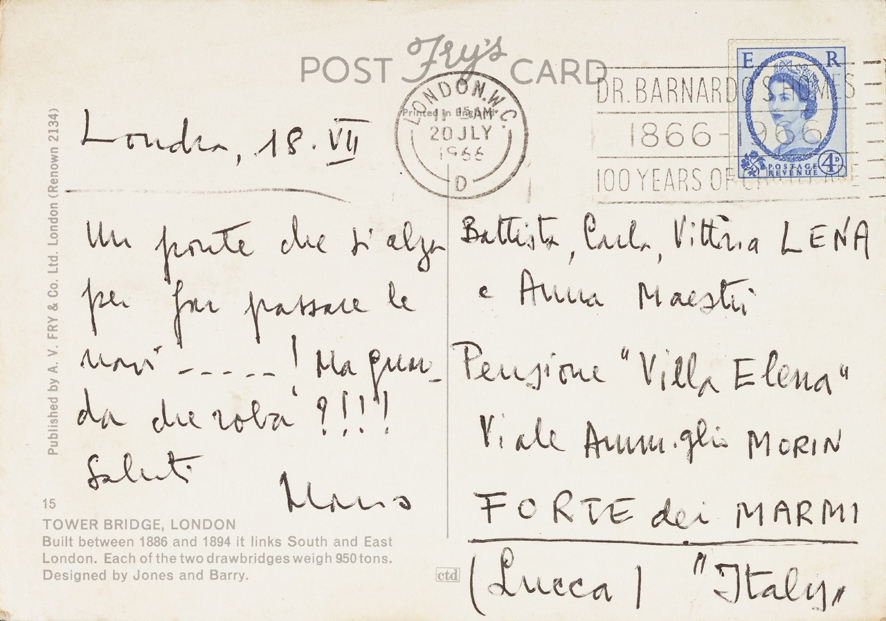 POST Fry's CARD
Printed in England
LONDON. W.C.
11 15AM
20 JLY
1966
D
DR. BARNARDO'S HOMES
1866-1966
100 YEARS OF
E R
POSTAGE
REVENUE
4D
Published by A. V. FRY & Co. Ltd. London (Renown 2134)
Londra, 18. VII
Un ponte che si alza
per far passare le
navi -----! Ma guar-
da che roba ?!!!
Saluti
Mario
Battista, Carla, Vittoria LENA
e Anna Maestri
Pensione "Villa Elena"
Viale Ammiraglio MORIN
FORTE dei MARMI
(Lucca) "Italy"
15
TOWER BRIDGE, LONDON
Built between 1886 and 1894 it links South and East
London. Each of the two drawbridges weigh 950 tons.
Designed by Jones and Barry.
ctd